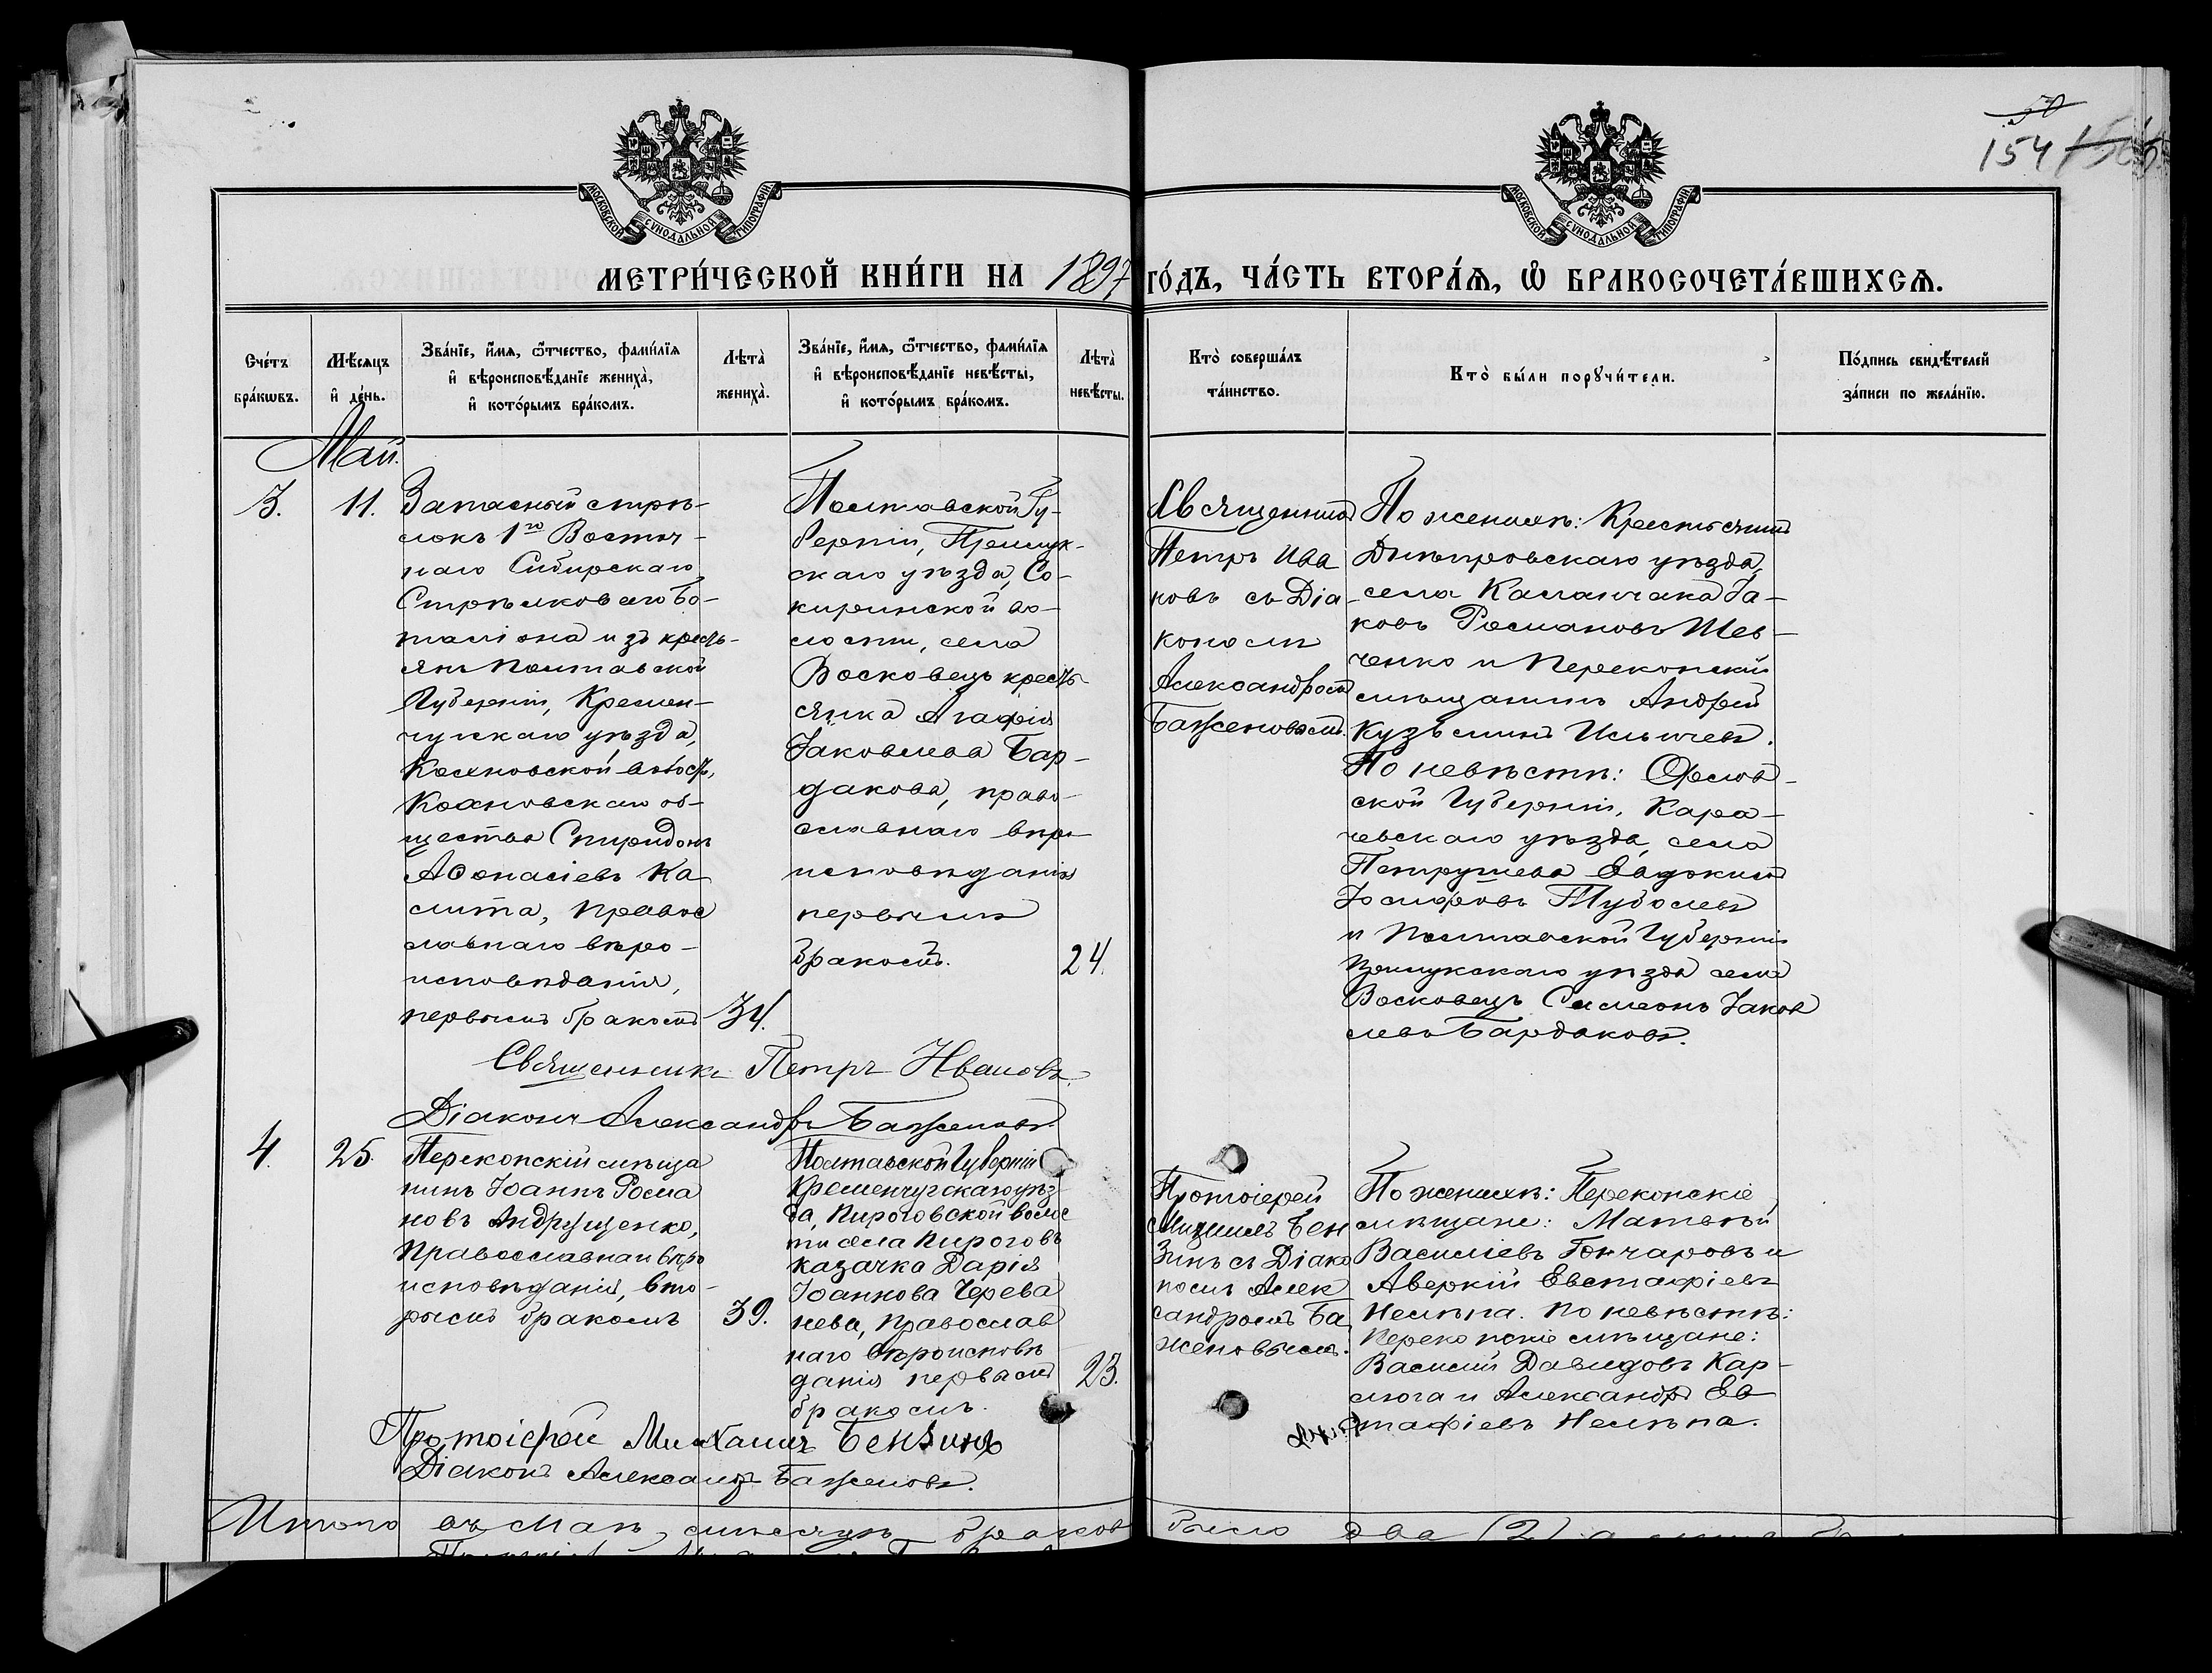 50
154
МОСКОВСКОЙ СѴНОДАЛЬНОЙ ТИПОГРАФІИ
МОСКОВСКОЙ СѴНОДАЛЬНОЙ ТИПОГРАФІИ
МЕТРИ́ЧЕСКОЙ КНИ́ГИ НА 1897 ГО́ДЪ, ЧА́СТЬ ВТОРА́Ѧ, Ѡ҆ БРАКОСОЧЕТА́ВШИХСѦ.
Сче́тъ
бра́кѡвъ.
Мѣ́сѧцъ
и҆ де́нь.
Зва́нїе, и҆́мѧ, ѻ҆́тчество, фами́лїѧ
и҆ вѣроисповѣ́данїе жениха̀,
и҆ кото́рымъ бра́комъ.
Лѣта̀
жениха̀.
Зва́нїе, и҆́мѧ, ѻ҆́тчество, фами́лїѧ
и҆ вѣроисповѣ́данїе невѣ́сты,
и҆ кото́рымъ бра́комъ.
Лѣта̀
невѣ́сты.
Кто̀ соверша́лъ
та́инство.
Кто̀ бы́ли порꙋчи́тели.
По́дпись свидѣ́телей
за́писи по жела́нїю.
Май.
3.
11.
Запасный стрѣ-
локъ 1го Восточ-
наго Сибирскаго
Стрѣлковаго Ба-
таліона изъ кресть-
янъ Полтавской
Губерніи, Кремен-
чугскаго уѣзда,
Кохновской волост,
Кохновскаго об-
щества Спиридонъ
Аѳанасіевъ Ка-
лита, Правос
лавнаго вѣро-
исповѣданія,
первымъ бракомъ
34.
Полтавской Гу-
берніи, Прилук-
скаго уѣзда, Со-
киринской во-
лости, села
Восковецъ кресть-
янка Агафія
Іаковлева Бар-
дакова, право-
славнаго вѣро
исповѣданія
первымъ
бракомъ.
24.
Священникъ
Петръ Ива
новъ съ Діа-
кономъ
Александромъ
Баженовымъ.
По женихѣ: Крестьянинъ
Днѣпровскаго уѣзда,
села Каланчака Іа-
ковъ Романовъ Шев-
ченко и Перекопскій
мѣщанинъ Андрей
Кузьминъ Ильичевъ.
По невѣстѣ: Орлов-
ской Губерніи, Кара-
чевскаго уѣзда, села
Петрушева Евдокимъ
Іосифовъ
и Полтавской Губерніи
Прилукскаго уѣзда села
Восковецъ Симеонъ Іаков
левъ Бардаковъ.
Священникъ Петръ Ивановъ
Діаконъ Александръ Баженовъ.
4.
25.
Перекопскій мѣща
нинъ Іоаннъ Рома
новъ Андрущенко,
Православнаго вѣро
исповѣданія, вто-
рымъ бракомъ
39.
Полтавской Губерніи
Кременчугскаго уѣз-
да, Пироговской волос
ти села Пироговъ
казачка Дарія
Іоаннова Черева
нева, православ
наго вѣроисповѣ
данія первымъ
бракомъ.
23.
Протоіерей
Михаилъ Бен
зинъ съ Діако
номъ Алек
сандромъ Ба
женовымъ.
По женихѣ: Перекопскіе
мѣщане: Матвѣй
Василіевъ Гончаровъ и
Аверкій Евстафіевъ
Нелѣпа. По невѣстѣ:
Перекопскіе мѣщане:
Василій Давидовъ Кар-
люга и Александръ Ев
стафіевъ Нелѣпа.
Протоіерей Михаилъ Бензинъ
Діаконъ Александръ Баженовъ.
Итого въ Маѣ мѣсяцѣ браковъ было два (2)